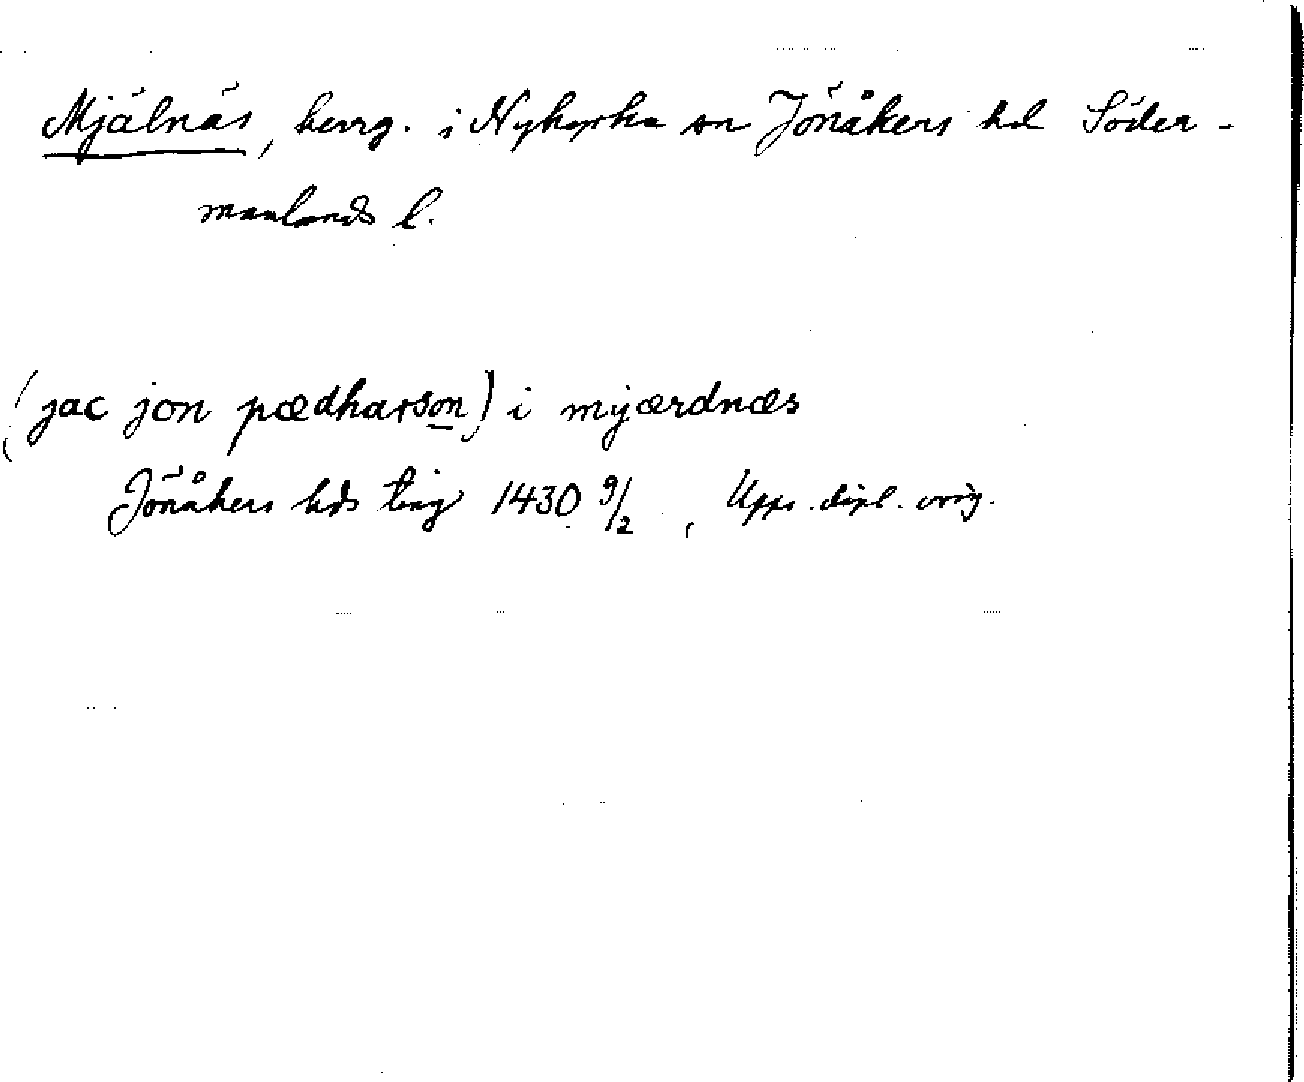 Mjälnäs, herrg. i Nykyrka sn Jönåkers hd Söder-
manlands l.
(jac jon pædharson) i myærdnæs
Jönåkers hds ting 1430 9/2, Upps. dipl. orig.